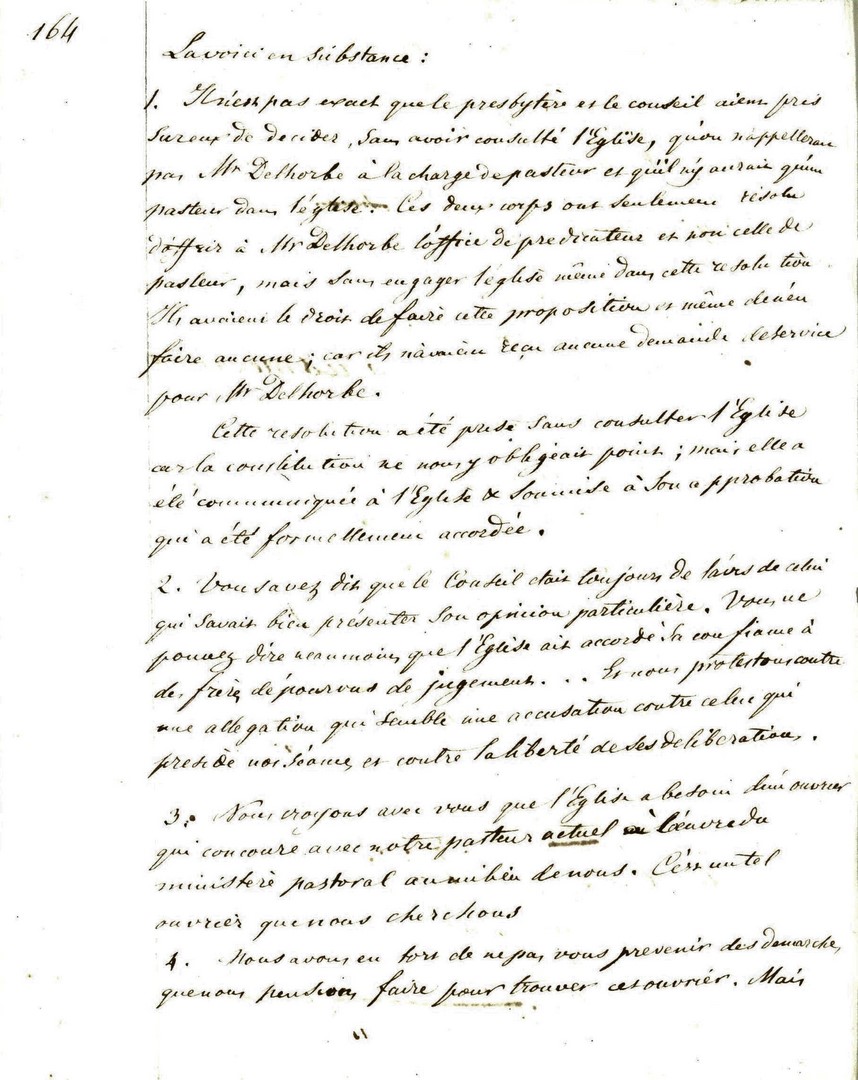 164
La voici en substance :
1. Il n'est pas exact que le presbytère et le conseil aient pris
sur eux de decider, sans avoir consulté l'Eglise, qu'on n'appellerait
pas Mr Delhorbe à la charge de pasteur et qu'il n'y aurait qu'un
pasteur dans l'église. Ces deux corps ont seulement résolu
d'offrir à Mr Delhorbe l'office de predicateur et non celle de
pasteur, mais sans engager l'église même dans cette resolution
Ils avaient le droit de faire cette proposition et même de n'en
faire aucune ; car ils n'avaient reçu aucune demande de service
pour Mr Delhorbe.
Cette resolution a été prise sans consulter l'Eglise
car la constitution ne nous y obligeait point ; mais elle a
été communiquée à l'Eglise & soumise à son approbation
qui a été formellement accordée.
2. Vous avez dit que le Conseil était toujours de l'avis de celui
qui savait bien présenter son opinion particulière. Vous ne
pouvez dire neanmoins que l'Eglise ait accordé sa confiance à
des frères dépourvus de jugement. .. Et nous protestons contre
une allegation qui semble une accusation contre celui qui
preside nos séances et contre la liberté de ses deliberations.
3. Nous croyons avec vous que l'Eglise a besoin d'un ouvrier
qui concoure avec notre pasteur actuel à l'œuvre du
ministère pastoral au milieu de nous. C'est un tel
ouvrier que nous cherchons
4. Nous avons eu tort de ne pas vous prevenir des demarches
que nous pensions faire pour trouver cet ouvrier. Mais